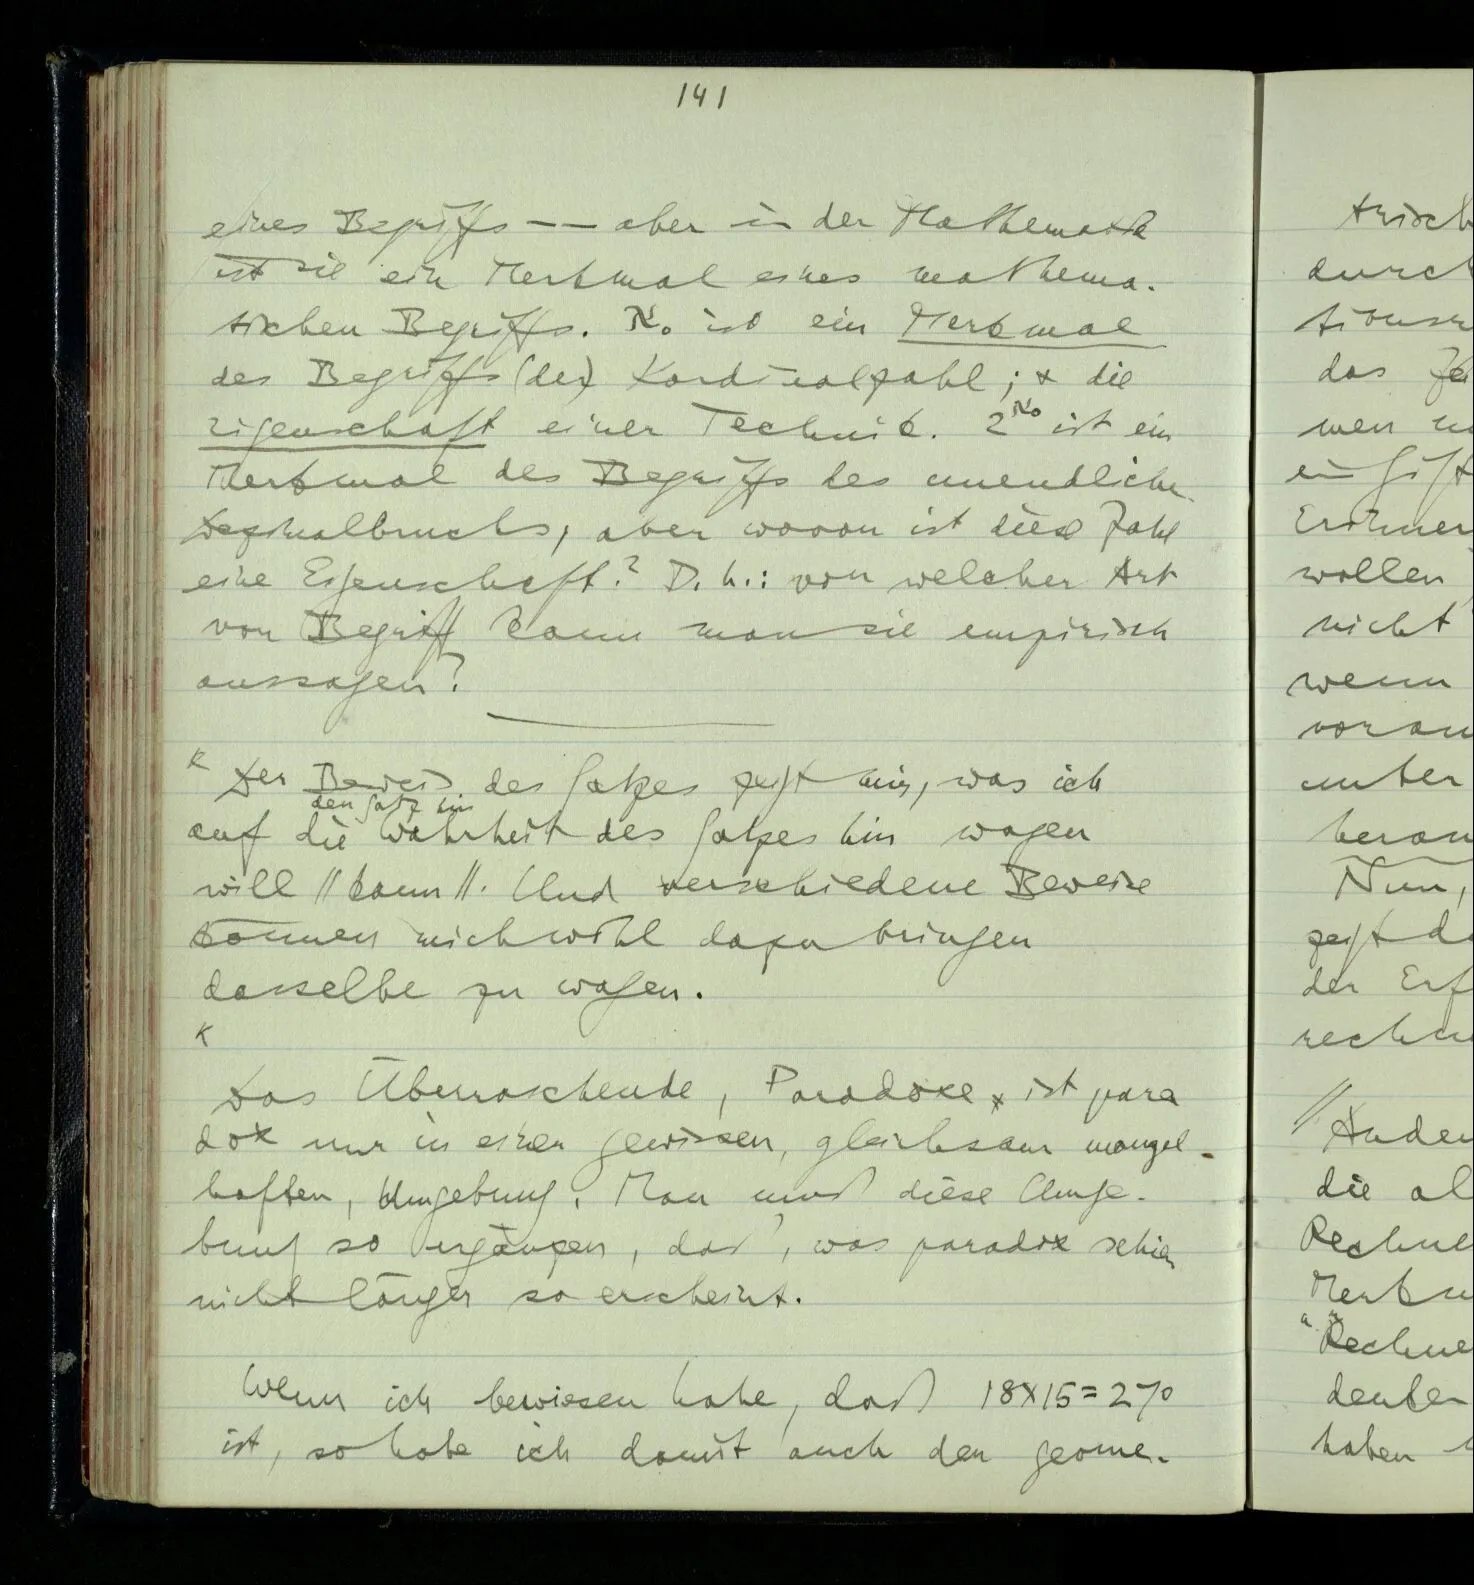 141
eines Begriffs — — aber in der Mathematik
ist sie ein Merkmal eines mathema-
tischen Begriffs. ℵ₀ ist ein Merkmal
des Begriffs (der) Kardinalzahl; & die
Eigenschaft einer Technik. 2^ℵ₀ ist ein
Merkmal des Begriffs des unendlichen
Dezimalbruchs, aber wovon ist diese Zahl
eine Eigenschaft? D.h.: von welcher Art
von Begriff kann man sie empirisch
aussagen?
Der Beweis des Satzes zeigt mir, was ich
den Satz hin
auf die Wahrheit des Satzes hin wagen
will // kann //. Und verschiedene Beweise
können mich wohl dazu bringen
dasselbe zu wagen.
Das Überraschende, Paradoxe, ist para
dox nur in einer gewissen, gleichsam mangel-
haften, Umgebung. Man muß diese Umge-
bung so ergänzen, daß, was paradox schien
nicht länger so erscheint.
Wenn ich bewiesen habe, daß 18×15=270
ist, so habe ich damit auch den geome-
durch
das
men
Erinner
wollen
nicht
wenn
voraus
unter
Nun,
der Erf
die al
Rechne
haben